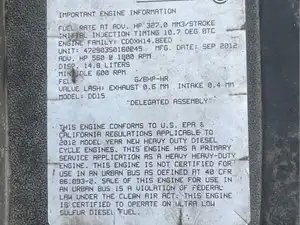 IMPORTANT ENGINE INFORMATION
FUEL RATE AT ADV. HP 327.0 MM3/STROKE
INITIAL INJECTION TIMING 10.7 DEG BTC
ENGINE FAMILY: CDDXH14.8EED
UNIT: 472903S0160245 MFG. DATE: SEP 2012
ADV. HP 560 @ 1800 RPM
DISP. 14.8 LITERS
MIN IDLE 600 RPM
FEL: G/BHP-HR
VALVE LASH: EXHAUST 0.6 MM INTAKE 0.4 MM
MODEL: DD15
"DELEGATED ASSEMBLY"
THIS ENGINE CONFORMS TO U.S. EPA &
CALIFORNIA REGULATIONS APPLICABLE TO
2012 MODEL YEAR NEW HEAVY DUTY DIESEL
CYCLE ENGINES. THIS ENGINE HAS A PRIMARY
SERVICE APPLICATION AS A HEAVY HEAVY-DUTY
ENGINE. THIS ENGINE IS NOT CERTIFIED FOR
USE IN AN URBAN BUS AS DEFINED AT 40 CFR
86.093-2. SALE OF THIS ENGINE FOR USE IN
AN URBAN BUS IS A VIOLATION OF FEDERAL
LAW UNDER THE CLEAN AIR ACT. THIS ENGINE
IS CERTIFIED TO OPERATE ON ULTRA LOW
SULFUR DIESEL FUEL.